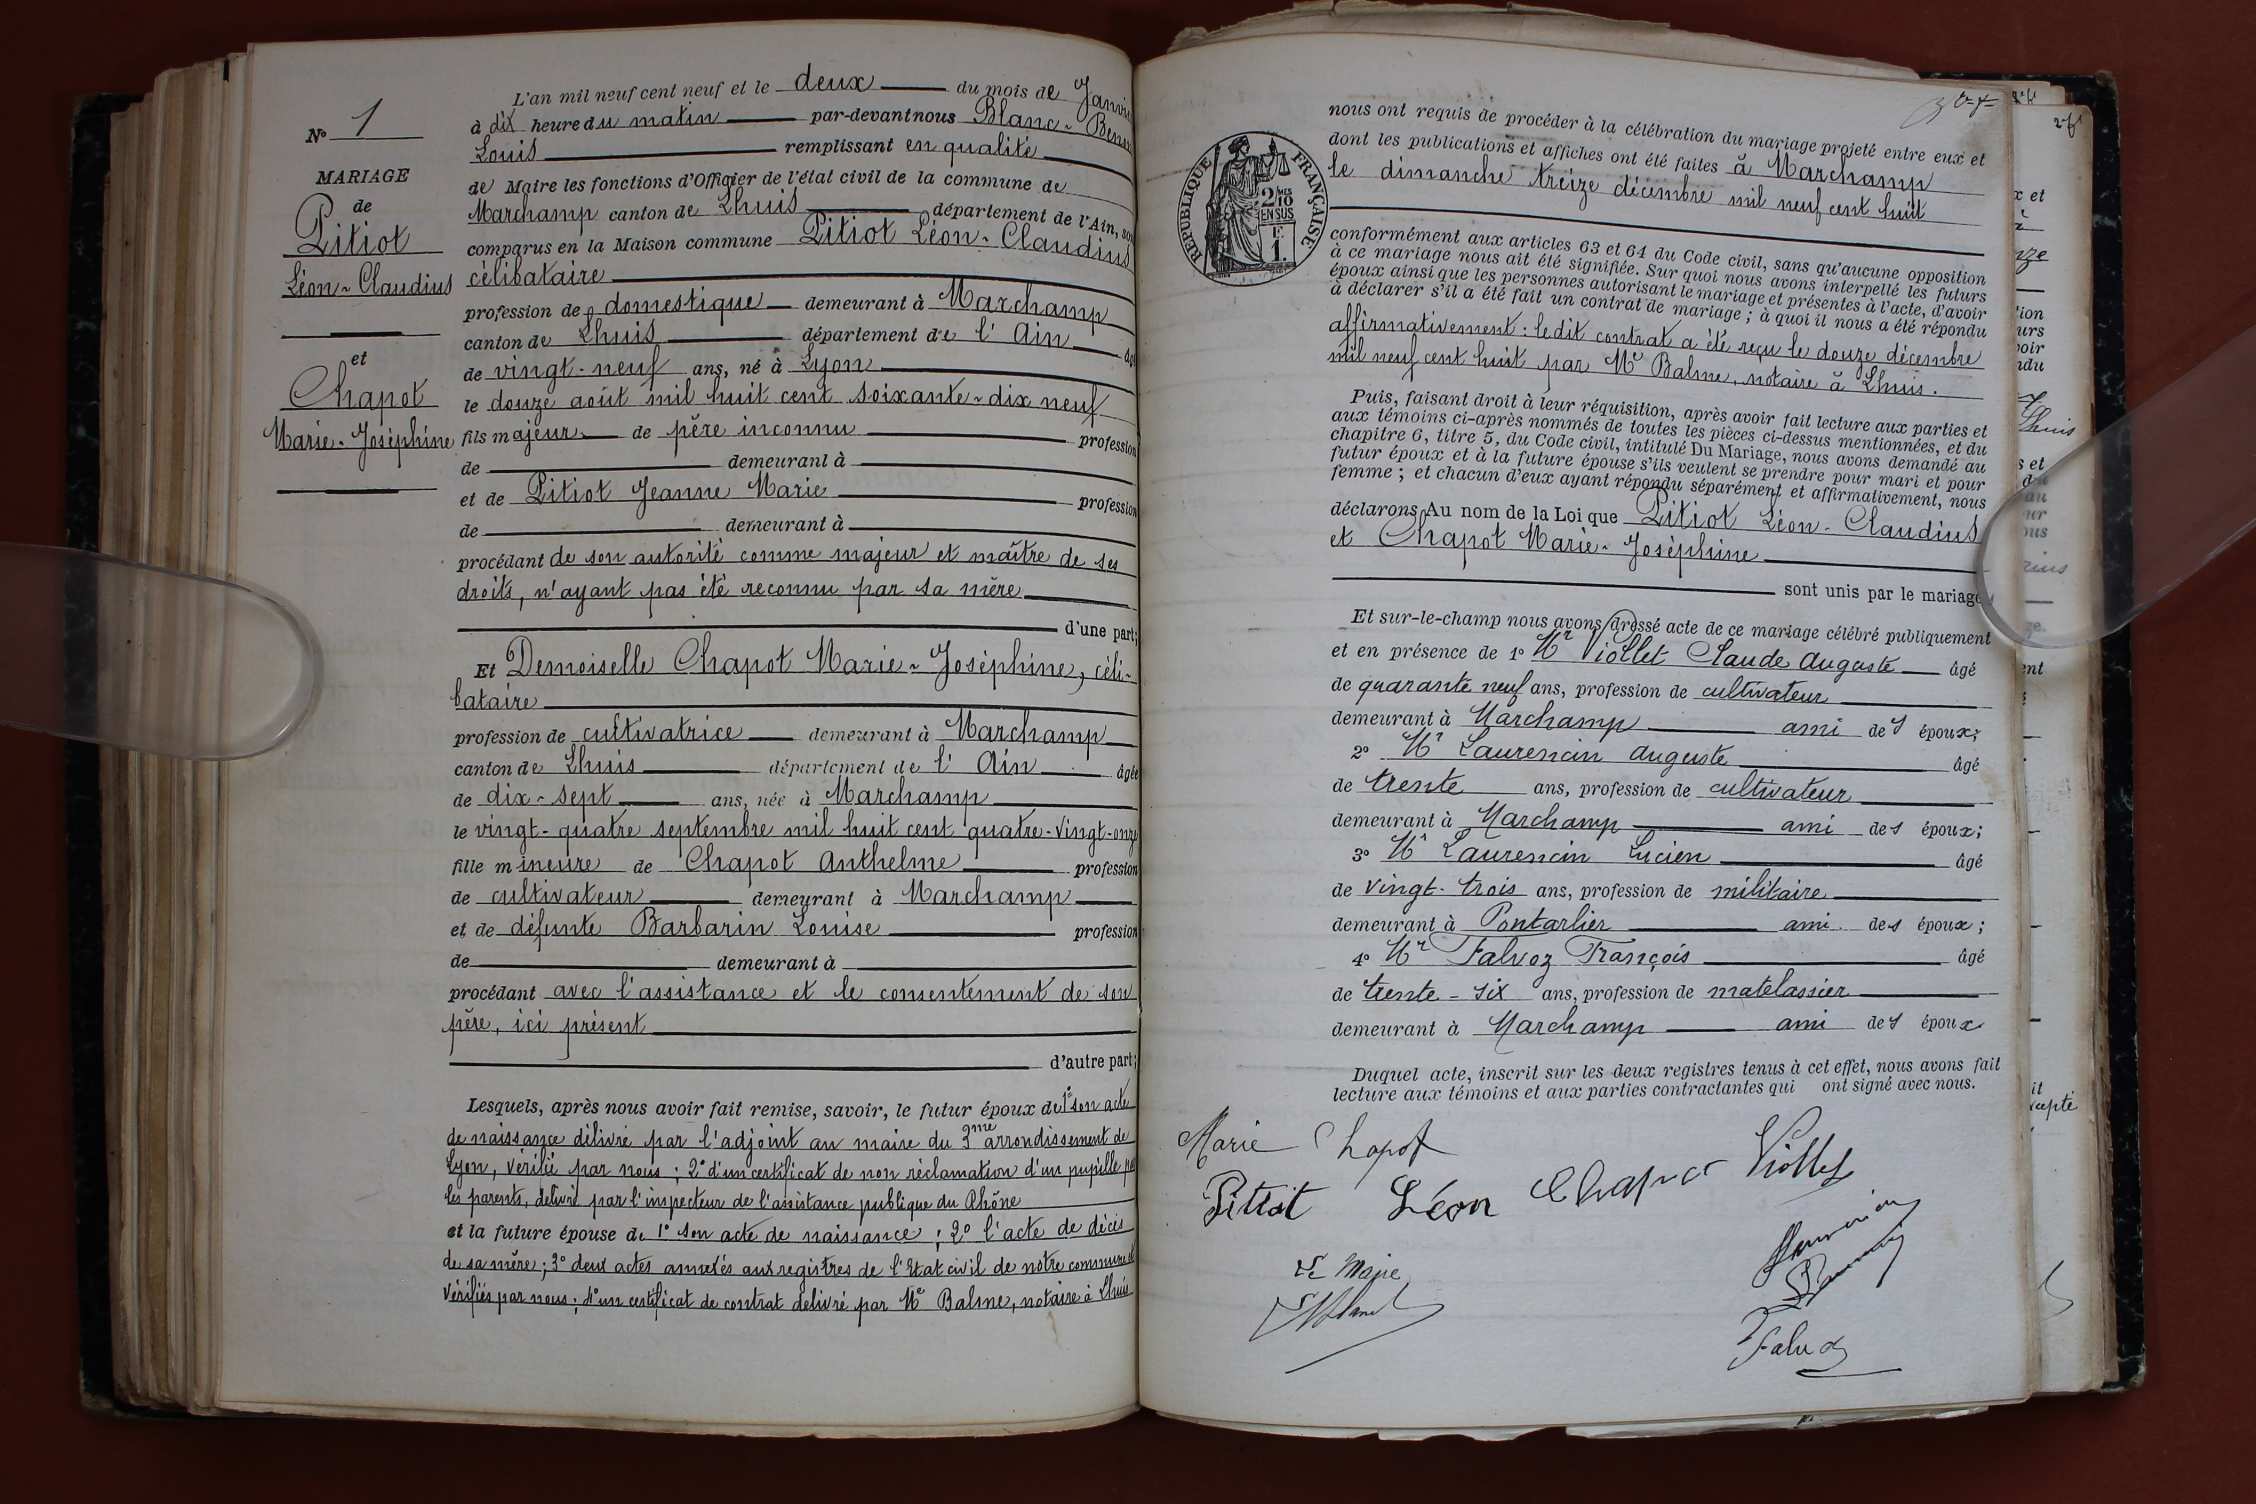 N° 1
MARIAGE
de
Pitiot
Léon-Claudius
et
Chapot
Marie-Joséphine
L'an mil neuf cent neuf et le deux du mois de Janvier
à dix heure du matin par-devant nous Blanc-
Louis remplissant en qualité
de Maire les fonctions d'Officier de l'état civil de la commune de
Marchamp canton de Lhuis département de l'Ain, son
comparus en la Maison commune Pitiot Léon-Claudius
célibataire
profession de domestique demeurant à Marchamp
canton de Lhuis département de l'Ain âgé
de vingt-neuf ans, né à Lyon
le douze août mil huit cent soixante-dix neuf
fils majeur de père inconnu profession
de demeurant à
et de Pitiot Jeanne Marie profession
de demeurant à
procédant de son autorité comme majeur et maître de ses
droits, n'ayant pas été reconnu par sa mère
d'une part;
Et Demoiselle Chapot Marie-Joséphine, céli-
bataire
profession de cultivatrice demeurant à Marchamp
canton de Lhuis département de l'Ain âgée
de dix-sept ans, née à Marchamp
le vingt-quatre septembre mil huit cent quatre-vingt-onze
fille mineure de Chapot Anthelme profession
de cultivateur demeurant à Marchamp
et de défunte Barbarin Louise profession
de demeurant à
procédant avec l'assistance et le consentement de son
père, ici présent
d'autre part;
Lesquels, après nous avoir fait remise, savoir, le futur époux de 1° son acte
de naissance délivré par l'adjoint au maire du 3me arrondissement de
Lyon, vérifié par nous; 2° d'un certificat de non réclamation d'un pupille par
les parents, délivré par l'inspecteur de l'assistance publique du Rhône
et la future épouse de 1° son acte de naissance; 2° l'acte de décès
de sa mère; 3° deux actes annexés aux registres de l'Etat civil de notre commune et
vérifiés par nous; 4° un certificat de contrat délivré par Me Balme, notaire à Lhuis
RÉPUBLIQUE FRANÇAISE
2 MES
10
EN SUS
F.
1.
nous ont requis de procéder à la célébration du mariage projeté entre eux et
dont les publications et affiches ont été faites à Marchamp
le dimanche treize décembre mil neuf cent huit
conformément aux articles 63 et 64 du Code civil, sans qu'aucune opposition
à ce mariage nous ait été signifiée. Sur quoi nous avons interpellé les futurs
époux ainsi que les personnes autorisant le mariage et présentes à l'acte, d'avoir
à déclarer s'il a été fait un contrat de mariage; à quoi il nous a été répondu
affirmativement: ledit contrat a été reçu le douze décembre
mil neuf cent huit par Me Balme, notaire à Lhuis.
Puis, faisant droit à leur réquisition, après avoir fait lecture aux parties et
aux témoins ci-après nommés de toutes les pièces ci-dessus mentionnées, et du
chapitre 6, titre 5, du Code civil, intitulé Du Mariage, nous avons demandé au
futur époux et à la future épouse s'ils veulent se prendre pour mari et pour
femme; et chacun d'eux ayant répondu séparément et affirmativement, nous
déclarons Au nom de la Loi que Pitiot Léon-Claudius
et Chapot Marie-Joséphine
sont unis par le mariage
Et sur-le-champ nous avons dressé acte de ce mariage célébré publiquement
et en présence de 1° Mr Viollet Claude Auguste âgé
de quarante neuf ans, profession de cultivateur
demeurant à Marchamp ami des époux;
2° Mr Laurencin Auguste âgé
de trente ans, profession de cultivateur
demeurant à Marchamp ami des époux;
3° Mr Laurencin Lucien âgé
de vingt-trois ans, profession de militaire
demeurant à Pontarlier ami des époux;
4° Mr Falvoz François âgé
de trente-six ans, profession de matelassier
demeurant à Marchamp ami des époux
Duquel acte, inscrit sur les deux registres tenus à cet effet, nous avons fait
lecture aux témoins et aux parties contractantes qui ont signé avec nous.
Marie Chapot
Pittiot Léon Chapot Viollet
Le Maire
LBlanc
Falvoz